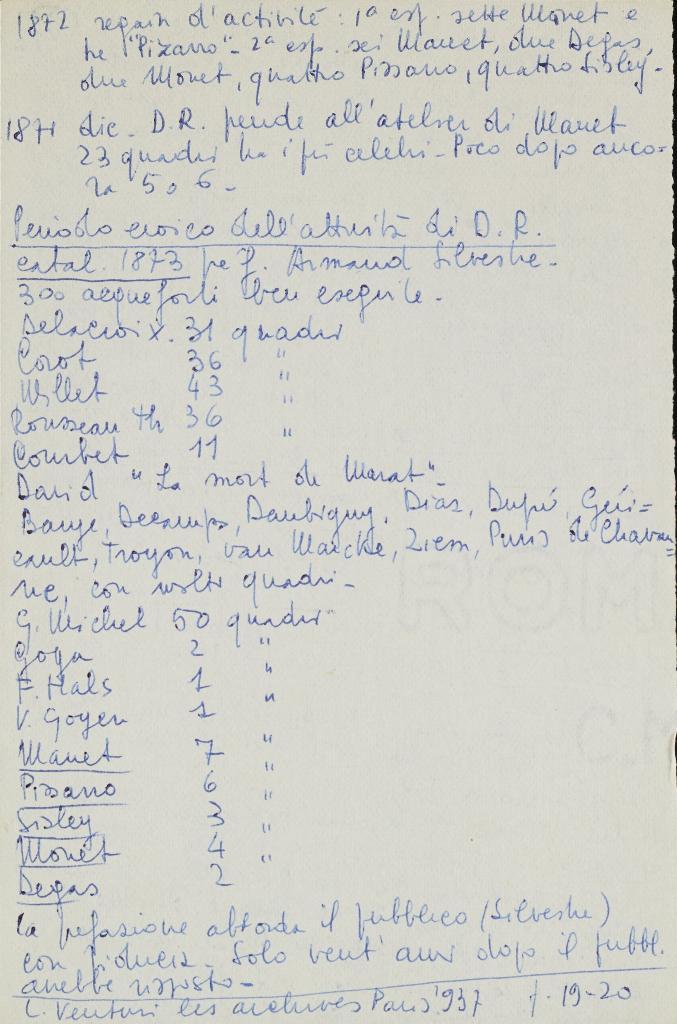 1872 regain d'activité : 1ª esp. sette Monet e
tre "Pizarro" - 2ª esp. sei Manet, due Degas,
due Monet, quattro Pissarro, quattro Sisley -
1871 dic - D.R. prende all'atelier di Manet
23 quadri tra i più celebri - Poco dopo anco=
ra 5 o 6 -
Periodo eroico dell'attività di D.R.
catal. 1873 pref. Armand Silvestre -
300 acqueforti ben eseguite -
Delacroix. 31 quadri
Corot 36 "
Millet 43 "
Rousseau Th 36
Courbet 11 "
David "La mort de Marat" -
Barye, Decamps, Daubigny, Diaz, Dupré, Géri=
cault, Troyon, Van Marcke, Ziem, Puvis de Chavan=
ne, con molti quadri -
G. Michel 50 quadri
Goya 2 "
F. Hals 1 "
V. Goyen 1 "
Manet 7 "
Pissarro 6 "
Sisley 3 "
Monet 4 "
Degas 2
la prefazione abborda il pubblico (Silvestre)
con fiducia - Solo vent'anni dopo il pubbl.
avrebbe risposto -
L. Venturi les archives Paris '937 f. 19-20